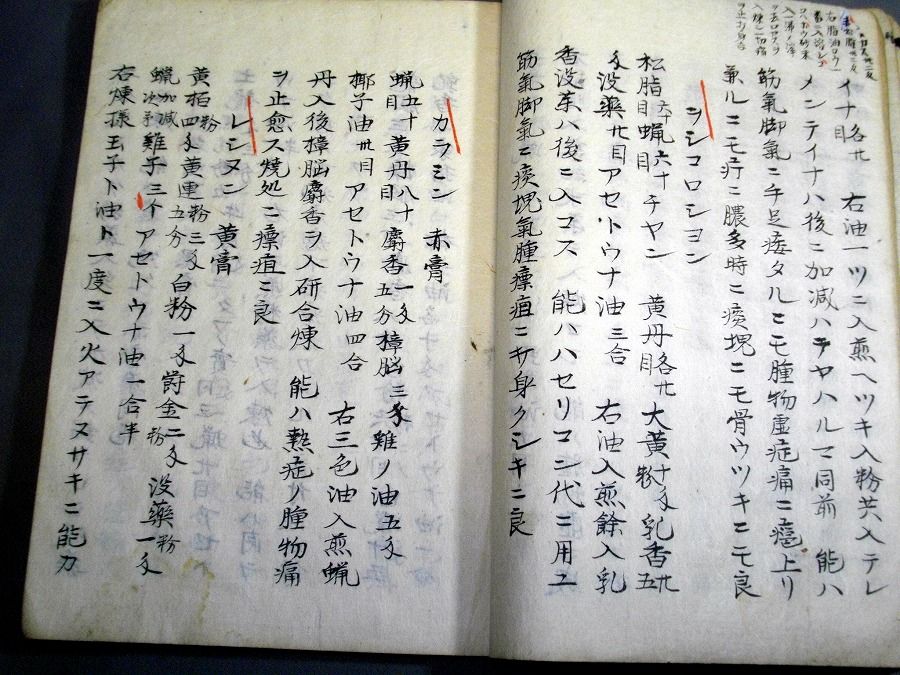 イナ目各廿 右油一ツニ入煎ヘツキ入粉共入テレ
メンテイナハ後ニ加減ハキヤハルマ同前 能ハ
筋氣脚氣ニ手足痿タルニモ腫物虚症痛ニ瘡上リ
氣ルニモ疔ニ膿多時ニ痰塊ニモ骨ウツキニモ良
ヲシコロシヨン
松脂目六十蝋六十 チヤン 黄丹目各廿 大黄粉廿匁乳香五廿
匁没薬廿目アセトウナ油三合 右油入煎餘入乳
香没薬ハ後ニ入コス 能ハハセリコン代ニ用ユ
筋氣脚氣ニ痰塊氣腫瘭疽ニキ身クシキニ良
カラミン 赤膏
蝋五十目 黄丹八十目 麝香一匁五分樟脳三匁 雞ノ油五匁
椰子油卅目アセトウナ油四合 右三色油入煎蝋
丹入後樟脳麝香ヲ入研合煉 能ハ熱症ノ腫物痛
ヲ止愈ス焼処ニ瘭疽ニ良
レシヌン 黄膏
黄栢粉四匁黄連粉三匁五分白粉一匁欝金粉二匁 没藥粉一匁
蝋加減次予雞子三个 アセトウナ油一合半
右煉様玉子ト油ト一度ニ入火アテヌサキニ能カ